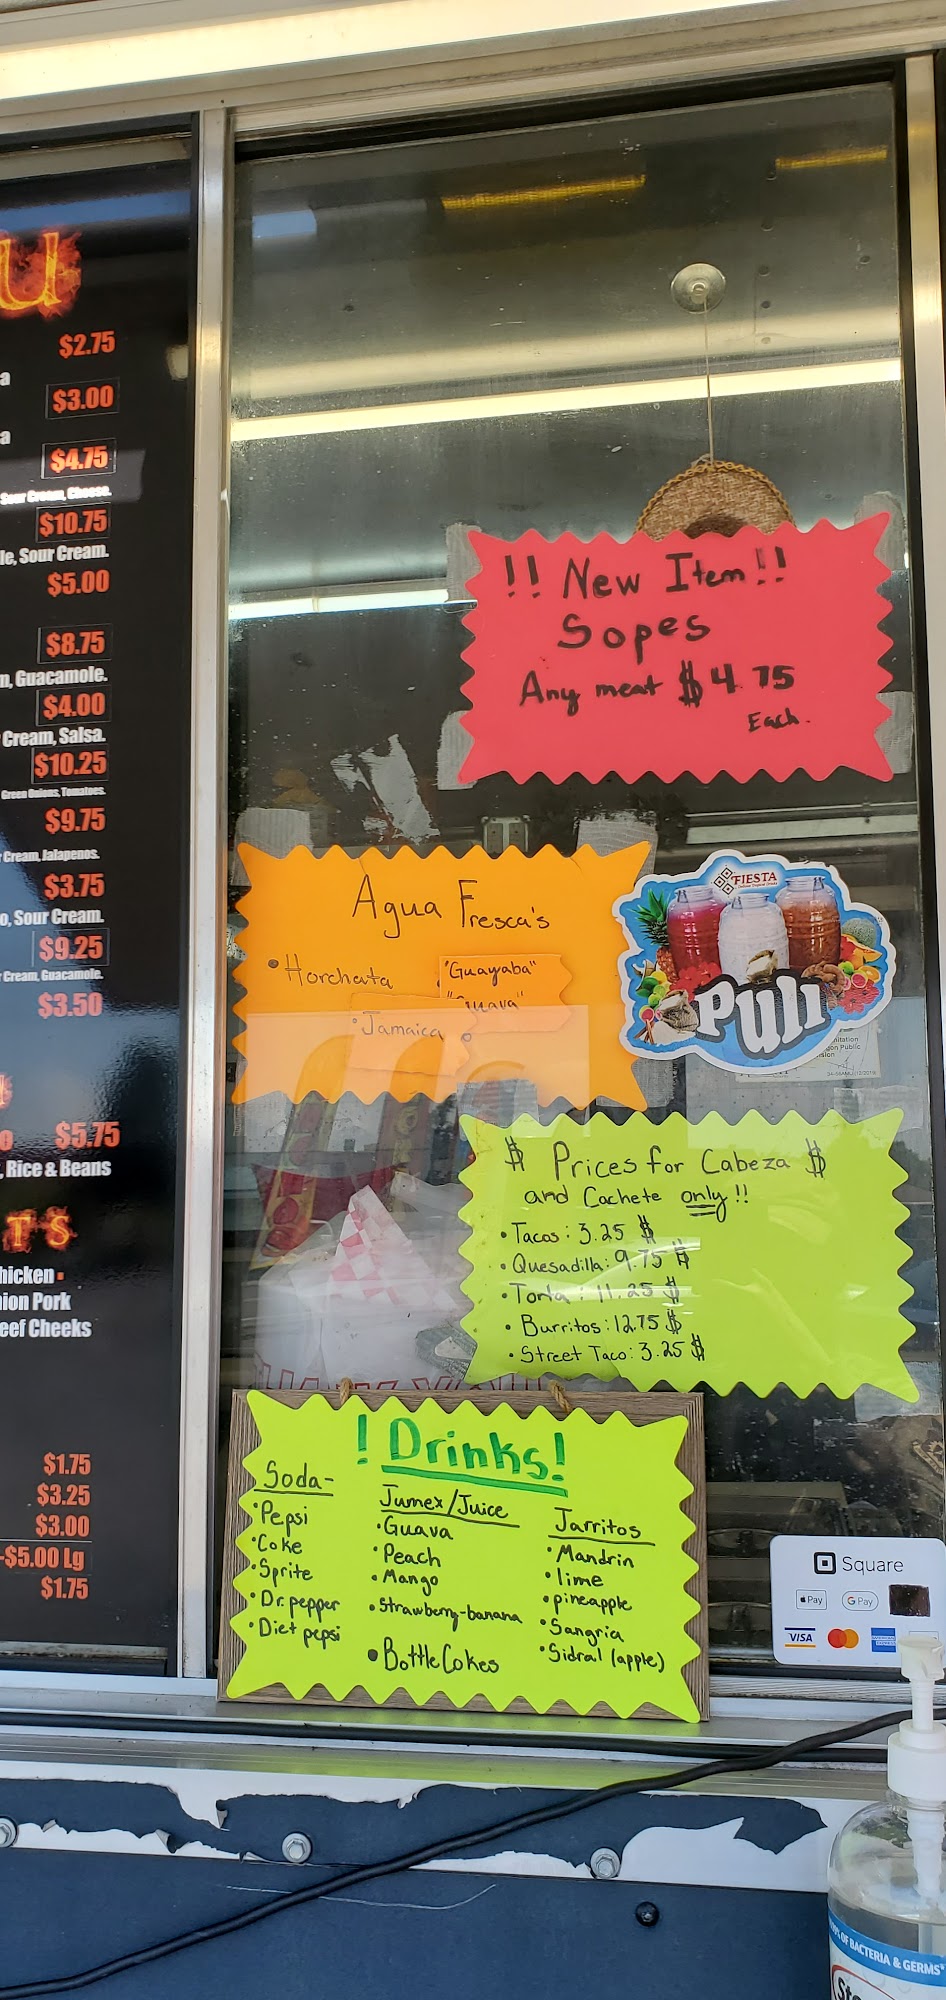 u
$2.75
a
$3.00
a
$4.75
Sour Cream, Cheese.
$10.75
le, Sour Cream.
$5.00
$8.75
m, Guacamole.
$4.00
Cream, Salsa.
$10.25
Green Onions, Tomatoes.
$9.75
Cream, Jalapenos.
$3.75
o, Sour Cream.
$9.25
Cream, Guacamole.
$3.50
o $5.75
, Rice & Beans
TS
hicken
ion Pork
eef Cheeks
$1.75
$3.25
$3.00
-$5.00 Lg
$1.75
!! New Item !!
Sopes
Any meat $4.75
Each.
Agua Fresca's
•Horchata
"Guayaba"
"Guava"
•Jamaica
FIESTA
Puli
nitation
gon Public
ision
$ Prices for Cabeza $
and Cachete only!!
•Tacos: 3.25 $
•Quesadilla: 9.75 $
•Torta: 11.25 $
•Burritos: 12.75 $
•Street Taco: 3.25 $
! Drinks!
Soda-
•Pepsi
•Coke
•Sprite
•Dr. pepper
•Diet pepsi
Jumex/Juice
•Guava
•Peach
•Mango
•Strawberry-banana
•Bottle Cokes
Jarritos
•Mandrin
•lime
•pineapple
•Sangria
•Sidral (apple)
Square
Pay
G Pay
VISA
OF BACTERIA & GERMS*